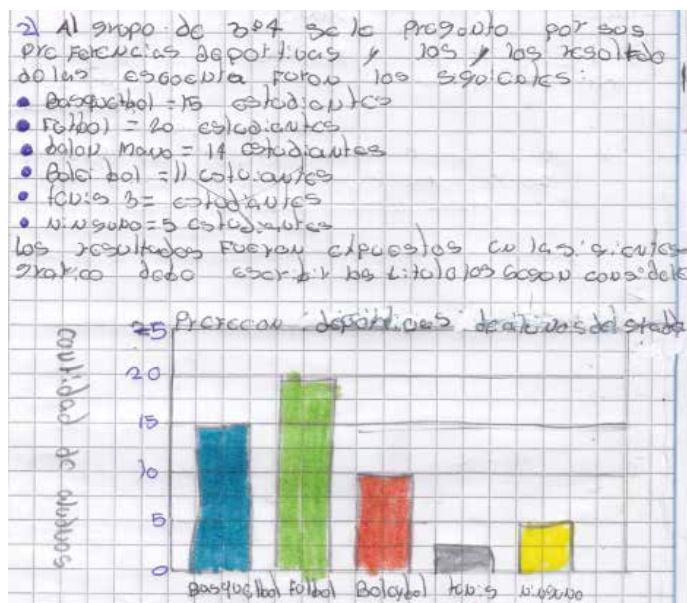 2) Al grupo de 2º4 se le pregonto por sus
preferencias deportivas y los y los resoltado
do las escoenta foron los sguicntes:
Basquetbol = 15 estodiantes
Fotbol = 20 estudiantes
balon mano = 14 estodiantes
Bolei bol = 11 estudiantes
tenis 3 = estodiantes
Ninguno = 5 estodiantes
los resultados fueron expuestos en las sigientes
grafico debo escribir los titulo los
25
deportivas de del
20
15
10
5
0
cantidad de alunos
Basquetbol Futbol Boleybol tenis ninguno